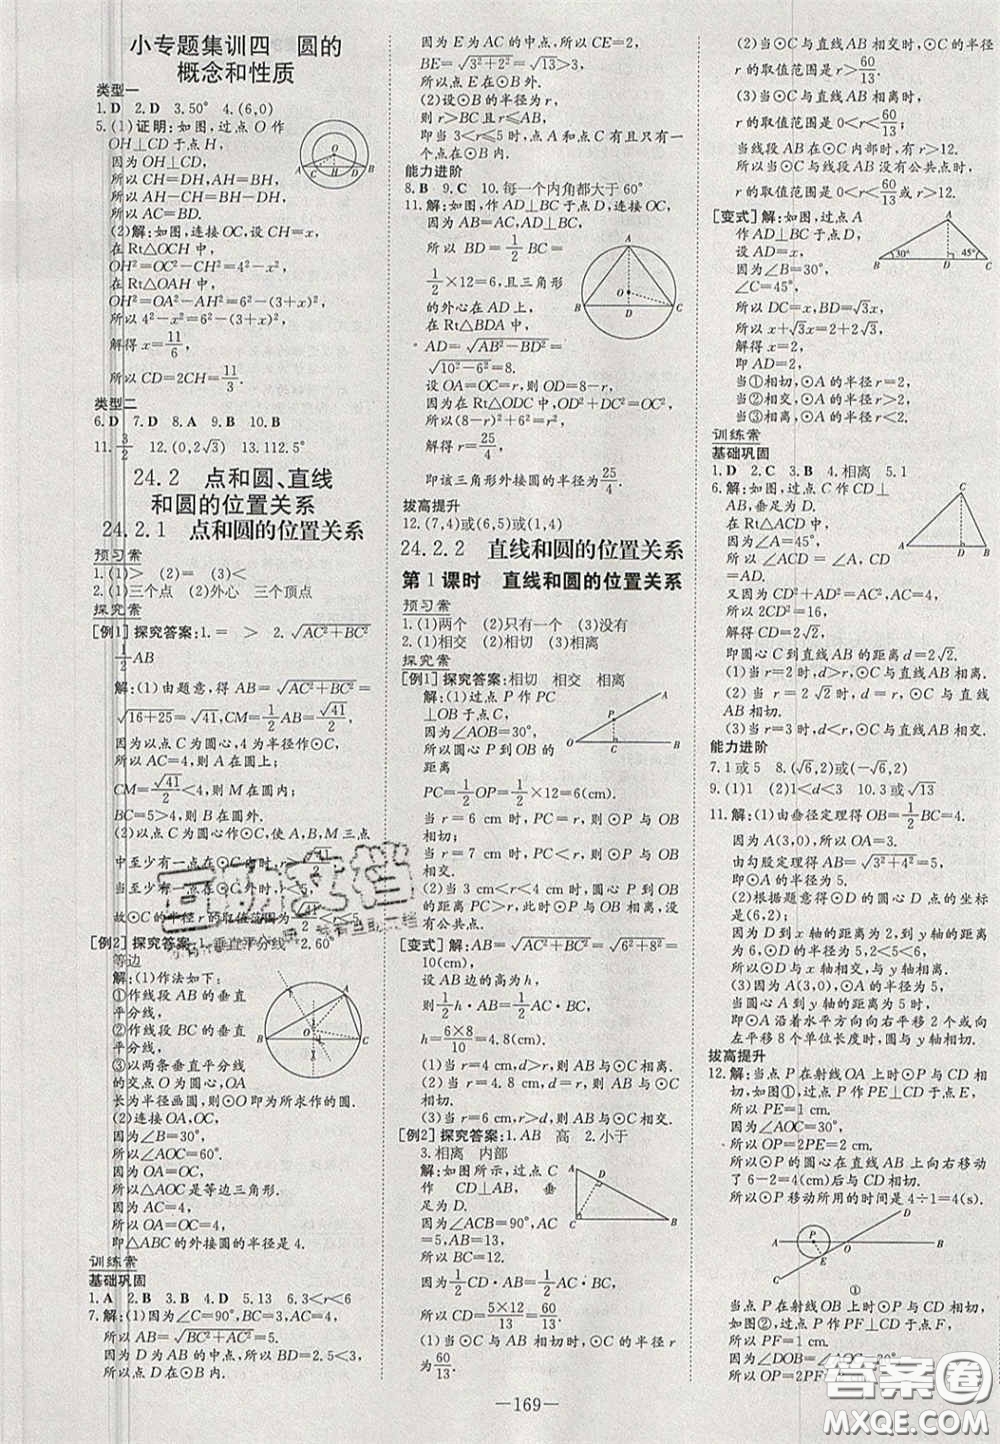 小专题集训四　圆的
概念和性质
类型一
1. D　2. D　3. 50°　4. (6,0)
5. (1)证明:如图,过点 O 作
OH⊥CD 于点 H,
因为 OH⊥CD,
所以 CH=DH,AH=BH,
所以 AC=BD.
(2)解:如图,连接 OC,设 CH=x,
在 Rt△OCH 中,
OH²=OC²−CH²=4²−x²,
在 Rt△OAH 中,
OH²=OA²−AH²=6²−(3+x)²,
所以 4²−x²=6²−(3+x)²,
解得 x=11/6,
所以 CD=2CH=11/3.
类型二
6. D　7. D　8. A　9. B　10. B
11. 3/2　12. (0,2√3)　13. 112.5°
24.2　点和圆、直线
和圆的位置关系
24.2.1　点和圆的位置关系
预习案
1. (1)>　(2)=　(3)<
2. (1)三个点　(2)外心　三个顶点
探究案
[例1] 探究答案:1. =　>　2. √(AC²+BC²)
1/2 AB
解:(1)由题意,得 AB=√(AC²+BC²)=
√(16+25)=√41,CM=1/2 AB=√41/2,
因为以点 C 为圆心,4 为半径作⊙C,
所以 AC=4,则 A 在圆上,
CM=√41/2<4,则 M 在圆内,
BC=5>4,则 B 在圆外.
(2)以点 C 为圆心作⊙C,使 A、B、M 三点
中至少有一点在圆内,
至少有一点在圆外时,
故⊙C 的半径 r 的取值范围为√41/2<r<5.
[例2] 探究答案:1. 垂直平分线　2. 60°
等边
解:(1)作法如下:
①作线段 AB 的垂直
平分线,
②作线段 BC 的垂直
平分线,
③以两条垂直平分线的
交点 O 为圆心,OA
长为半径画圆,则圆 O 即为所求作的圆.
(2)连接 OA,OC,
因为∠B=30°,
所以∠AOC=60°,
因为 OA=OC,
所以△AOC 是等边三角形.
因为 AC=4,
所以 OA=OC=4,
即△ABC 的外接圆的半径是 4.
训练案
基础巩固
1. A　2. B　3. B　4. D　5. 13　6. 3<r<6
7. 解:(1)因为∠C=90°,AC=4,BC=3,
所以 AB=√(BC²+AC²)=5.
因为 D 为 AB 的中点,所以 BD=2.5<3,
所以点 D 在⊙B 内.
因为 E 为 AC 的中点,所以 CE=2,
BE=√(3²+2²)=√13>3,
所以点 E 在⊙B 外.
(2)设⊙B 的半径为 r,
则 r>BC=3,且 r≤AB=5,
即当 3<r≤5 时,点 A 和点 C 有且只有一
个点在⊙B 内.
能力进阶
8. B　9. C　10. 每一个内角都大于 60°
11. 解:如图,作 AD⊥BC 于 D,连接 OC,
因为 AB=AC,AD⊥BC,
所以 BD=1/2 BC=
1/2×12=6,且三角形
的外心在 AD 上,
在 Rt△BDA 中,
AD=√(AB²−BD²)=
√(10²−6²)=8.
设 OA=OC=r,则 OD=8−r,
在 Rt△ODC 中,OD²+DC²=OC²,
所以(8−r)²+6²=r²,
解得 r=25/4,
即该三角形外接圆的半径长为25/4.
拔高提升
12. (7,4)或(6,5)或(1,4)
24.2.2　直线和圆的位置关系
第1课时　直线和圆的位置关系
预习案
1. (1)两个　(2)只有一个　(3)没有
2. (1)相交　(2)相切　(3)相离
探究案
[例1] 探究答案:相切　相交　相离
解:(1)过点 P 作 PC
⊥OB 于点 C,
因为∠AOB=30°,
所以圆心 P 到 OB
的距离
PC=1/2 OP=1/2×12=6(cm).
当 r=6 cm 时,PC=r,则⊙P 与 OB
相切;
当 r=7 cm 时,PC<r,则⊙P 与 OB
相交.
(2)当⊙P 与 OB 相离时,
r<PC,则 r 需满足的条件是:
0 cm<r<6 cm,此时⊙P 与 OB 没有公共点.
[变式] 解:AB=√(AC²+BC²)=√(6²+8²)=
10(cm),
设 AB 边上的高为 h,
则1/2 h·AB=1/2 AC·BC,
h=(6×8)/10=4.8(cm).
(1)当 r=4 cm 时,AB 与⊙C 相离.
(2)当 r=4.8 cm 时,AB 与⊙C
相切.
(3)当 r=6 cm,r>d,所以 AB 与⊙C 相交.
[例2] 探究答案:1. AB　高　2. 小于
3. 相离　内部
解:如图所示,过点 C
作 CD⊥AB,垂
足为 D.
因为∠ACB=90°,AC
=5,AB=13,
所以 BC=12.
因为1/2 CD·AB=1/2 AC·BC,
所以 CD=(5×12)/13=60/13.
(1)当⊙C 与 AB 相切时,⊙C 的半径 r
为60/13.
(2)当⊙C 与直线 AB 相交时,⊙C 的半径
r 的取值范围是 r>60/13.
(3)当⊙C 与直线 AB 相离时,⊙C 的半径
r 的取值范围是 0<r<60/13;
当线段 AB 在⊙C 内部时,有 r>12.
所以当⊙C 与线段 AB 没有公共点时,
r 的取值范围是 0<r<60/13或 r>12.
[变式] 解:如图,过点 A
作 AD⊥BC 于点 D,
因为∠B=30°,
∠C=45°,
所以 DC=x,BD=√3x,
所以 x+√3x=2+2√3,
所以 x=2,
即 AD=2,
当①相切,⊙A 的半径 r=2.
当②相交,⊙A 的半径 r>2.
当③相离,⊙A 的半径 r<2.
训练案
基础巩固
1. D　2. C　3. B　4. 相离　5. 1
6. 解:如图,过点 C 作 CD⊥
AB,垂足为 D.
因为∠A=45°,
所以∠ACD=45°,
所以 AD=CD.
又因为 CD²+AD²=AC²,AC=4,
所以 2CD²=16,
解得 CD=2√2,
即圆心 C 到 AB 的距离 d=2√2.
(1)当 r=2 时,d>r,⊙C 与 AB 相离.
(2)当 r=2√2 时,d=r,⊙C 与直线
AB 相切.
(3)当 r=3 时,d<r,⊙C 与直线 AB 相交.
能力进阶
7. 1 或 5　8. (√6,2)或(−√6,2)
9. (1)1　(2)1<d<3　10. 3 或√13
11. 解:(1)由垂径定理得 OB=1/2 BC=4.
因为 A(3,0),所以 OA=3.
由勾股定理得 AB=√(3²+4²)=5.
所以⊙A 的半径为 5.
(2)根据题意得圆心 D 点的坐标
是(6,2);
因为⊙D 的半径为 5,2<5<6,
所以⊙D 与 x 轴相交,与 y 轴相离.
(3)因为⊙A 的半径为 5,
当圆心 A 到 y 轴的距离为 5 时,
⊙A 与 y 轴相切,
即⊙A 沿着水平方向向右平移 2 个单位长度或向
左平移 8 个单位长度时,圆与 y 轴相切.
拔高提升
12. 解:当点 P 在射线 OA 上时,⊙P 与 CD
相切,如图①,过点 P 作 PE⊥CD 于点 E,
所以 PE=1 cm.
因为∠AOC=30°,
所以 OP=2PE=2 cm,
所以⊙P 的圆心在直线 AB 上向右移动
了 6−2=4(cm)后与 CD 相切,
所以⊙P 移动所用的时间是 4÷1=4(s).
①
当点 P 在射线 OB 上时,⊙P 与 CD 相切,
如图②,过点 P 作 PF⊥CD 于点 F,
所以 PF=1 cm.
因为∠DOB=∠AOC=30°,
所以 OP=2PF=2 cm,
—169—
答案圈
MXQE.COM